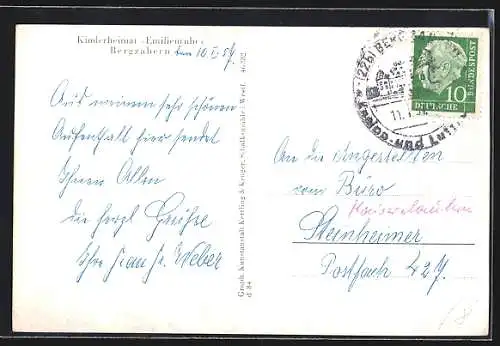 Kinderheimat "Emilienruhe"
Bergzabern den 10.V.54
Aus meinem sehr schönen
Aufenthalt hier sendet
Ihnen Allen
die herzl. Grüße
Ihre Frau Fr. Weber
Graph. Kunstanstalt Kettling & Krüger, Schalksmühle i. Westf. 46202
d 84
(22b) BERGZABERN
11.
Kneipp- und
DEUTSCHE
BUNDESPOST
10
An die Angestellten
vom Büro
Kaiserslautern
Steinheimer
Postfach 427.